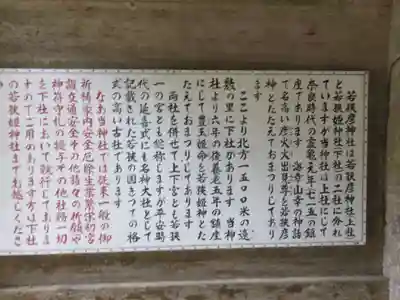 若狭彦神社は若狭彦神社上社
と若狭姫神社下社の二社に分れ
ていますが当神社は上社にして
奈良時代の霊亀元年七一五の鎮
座であります 海幸山幸の神話
で名高い彦火火出見尊を若狭彦
神とたたえておまつりしてあり
ます
ここより北方一五〇〇米の遠
敷の里に下社があります 当神
社より六年の後養老五年の鎮座
にして豊玉姫命を若狭姫神とた
たえておまつりしてあります
両社を併せて上下宮とも若狭
一の宮とも総称しますが平安時
代の延喜式にも名神大社として
記載された若狭の国きっての格
式の高い古社であります
なお当神社では参来一般の御
祈祷家内安全厄除生業繁栄初宮
詣交通安全その他諸々の祈願や
神符守札の授与その他社務一切
を下社において執行しておりま
すのでご用のあります方は下社
の若狭姫神社までお越しくださ